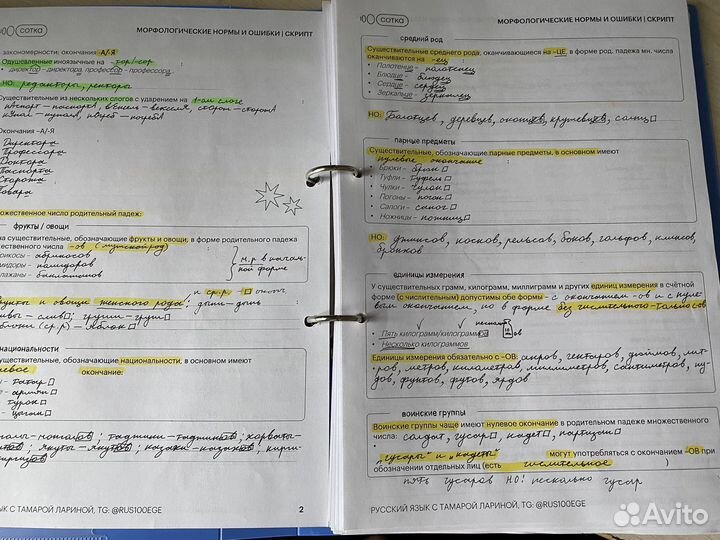 сотка
МОРФОЛОГИЧЕСКИЕ НОРМЫ И ОШИБКИ | СКРИПТ
закономерности: окончания А/-Я
Одушевленные иноязычные на -тор/-сор
• директор – директора, профессор – профессора
НО: редакторы, ректоры
Существительные из нескольких слогов с ударением на 1-ом слоге
паспорт – паспортА, вексель – векселЯ, сторож – сторожА
купол – куполА, погреб – погребА
Окончания -А/-Я
Директора
Профессора
Доктора
Паспорта
Сторожа
множественное число родительный падеж:
фрукты / овощи
на существительные, обозначающие фрукты и овощи, в форме родительного падежа
множественного числа -ов (мужской род)
абрикосы – абрикосов
помидоры – помидоров
баклажаны – баклажанов
м.р в начальной форме
и ср.р. -
фрукты и овощи женского рода: дынь – дынь
сливы – слив; груши – груш
яблоки (ср.р) – яблок
национальности
существительные, обозначающие национальности, в основном имеют
нулевое окончание:
татар
армян
турок
цыган
монголы – монголов; таджики – таджиков; хорваты –
якуты – якутов; казахи – казахов; кирги-
киргизов
РУССКИЙ ЯЗЫК С ТАМАРОЙ ЛАРИНОЙ, TG: @RUS100EGE
2
сотка
МОРФОЛОГИЧЕСКИЕ НОРМЫ И ОШИБКИ | СКРИПТ
средний род
Существительные среднего рода, оканчивающиеся на -ЦЕ, в форме род. падежа мн. числа
оканчиваются на -ец
• Полотенце – полотенец
• Блюдце – блюдец
• Сердце – сердец
• Зеркальце – зеркалец
НО: Болотцев, деревцев, оконцев, кружевцев, солнц
парные предметы
Существительные, обозначающие парные предметы, в основном имеют
нулевые окончание :
• Брюки – брюк
• Туфли – туфель
• Чулки – чулок
• Погоны – погон
• Сапоги – сапог
• Ножницы – ножниц
НО: джинсов, носков, рельсов, боков, гольфов, клипсов,
бронхов
единицы измерения
У существительных грамм, килограмм, миллиграмм и других единиц измерения в счётной
форме (с числительным) допустимы обе формы – с окончанием -ов и с нуле
вым окончанием, но в форме без числительного - только ов
• Пять килограмм/килограммов
• Несколько килограммов
Единицы измерения обязательно с –ОВ: акров, гектаров, дюймов, лит-
ров, метров, километров, миллиметров, сантиметров, пу-
дов, фунтов, футов, ярдов
воинские группы
Воинские группы чаще имеют нулевое окончание в родительном падеже множественного
числа: солдат, гусар, кадет, партизан
"гусары" и "кадеты" могут употребляться с окончанием -ОВ при
обозначении отдельных лиц (есть числительное )
пять гусаров НО! несколько гусар
РУССКИЙ ЯЗЫК С ТАМАРОЙ ЛАРИНОЙ, TG: @RUS100EGE
Avito